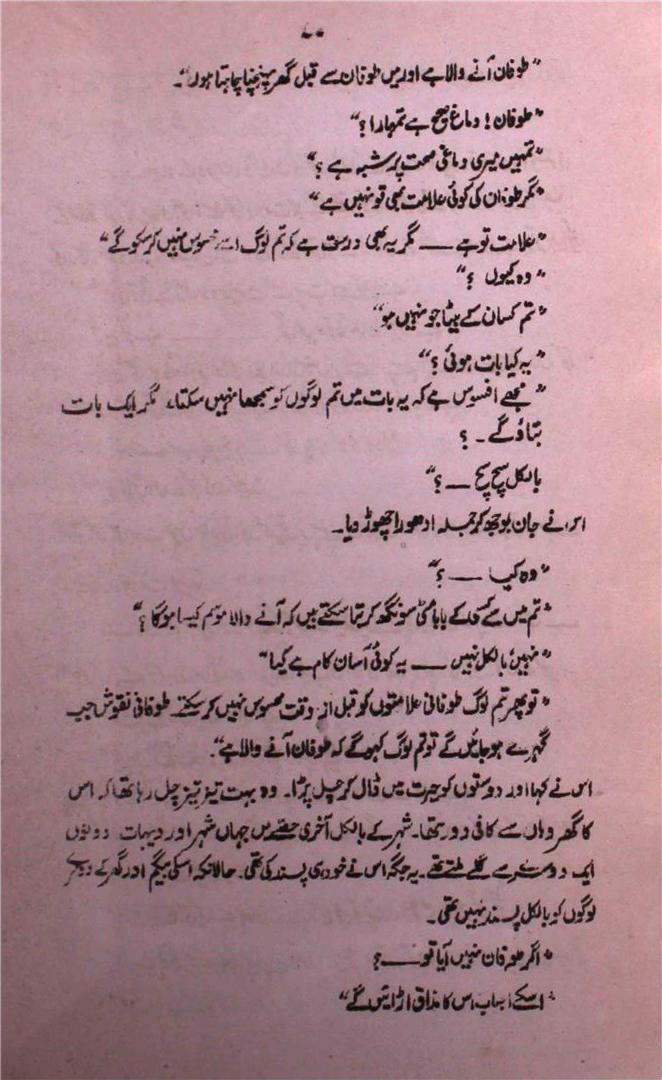 "طوفان آنے والا ہے اور میں طوفان سے قبل گھر پہنچنا چاہتا ہوں"۔
"طوفان! دماغ صحیح ہے تمہارا؟"
"تمہیں میری دماغی صحت پر شبہ ہے؟"
"مگر طوفان کی کوئی علامت بھی تو نہیں ہے"
"علامت تو ہے ـــ مگر یہ بھی درست ہے کہ تم لوگ اسے محسوس نہیں کر سکو گے"
"وہ کیوں ؟"
"تم کسان کے بیٹا جو نہیں ہو"
"یہ کیا بات ہوئی؟"
"مجھے افسوس ہے کہ یہ بات میں تم لوگوں کو سمجھا نہیں سکتا، مگر ایک بات
بتاؤ گے۔ ؟
بالکل سچ سچ ـــ؟"
اس نے جان بوجھ کر جملہ ادھورا چھوڑ دیا۔
"وہ کیا ـــ؟"
"تم میں سے کسی کے بابا مٹی سونگھ کر بتا سکتے ہیں کہ آنے والا موسم کیسا ہوگا؟"
"نہیں' بالکل نہیں ـــ یہ کوئی آسان کام ہے کیا"
"تو پھر تم لوگ طوفانی علامتوں کو قبل از وقت محسوس نہیں کر سکتے۔ طوفانی نقوش جب
گہرے ہو جائیں گے تو تم لوگ کہو گے کہ طوفان آنے والا ہے"۔
اس نے کہا اور دوستوں کو حیرت میں ڈال کر چل پڑا۔ وہ بہت تیز تیز چل رہا تھا کہ اس
کا گھر وہاں سے کافی دور تھا۔ شہر کے بالکل آخری حصے میں جہاں شہر اور دیہات دونوں
ایک دوسرے سے گلے ملتے تھے۔ یہ جگہ اس نے خود ہی پسند کی تھی۔ حالانکہ اسکی بیگم اور گھر کے دیگر
لوگوں کو بالکل پسند نہیں تھی۔
"اگر طوفان نہیں آیا تو ـــ؟
"اسکے احباب اس کا مذاق اڑائیں گے"